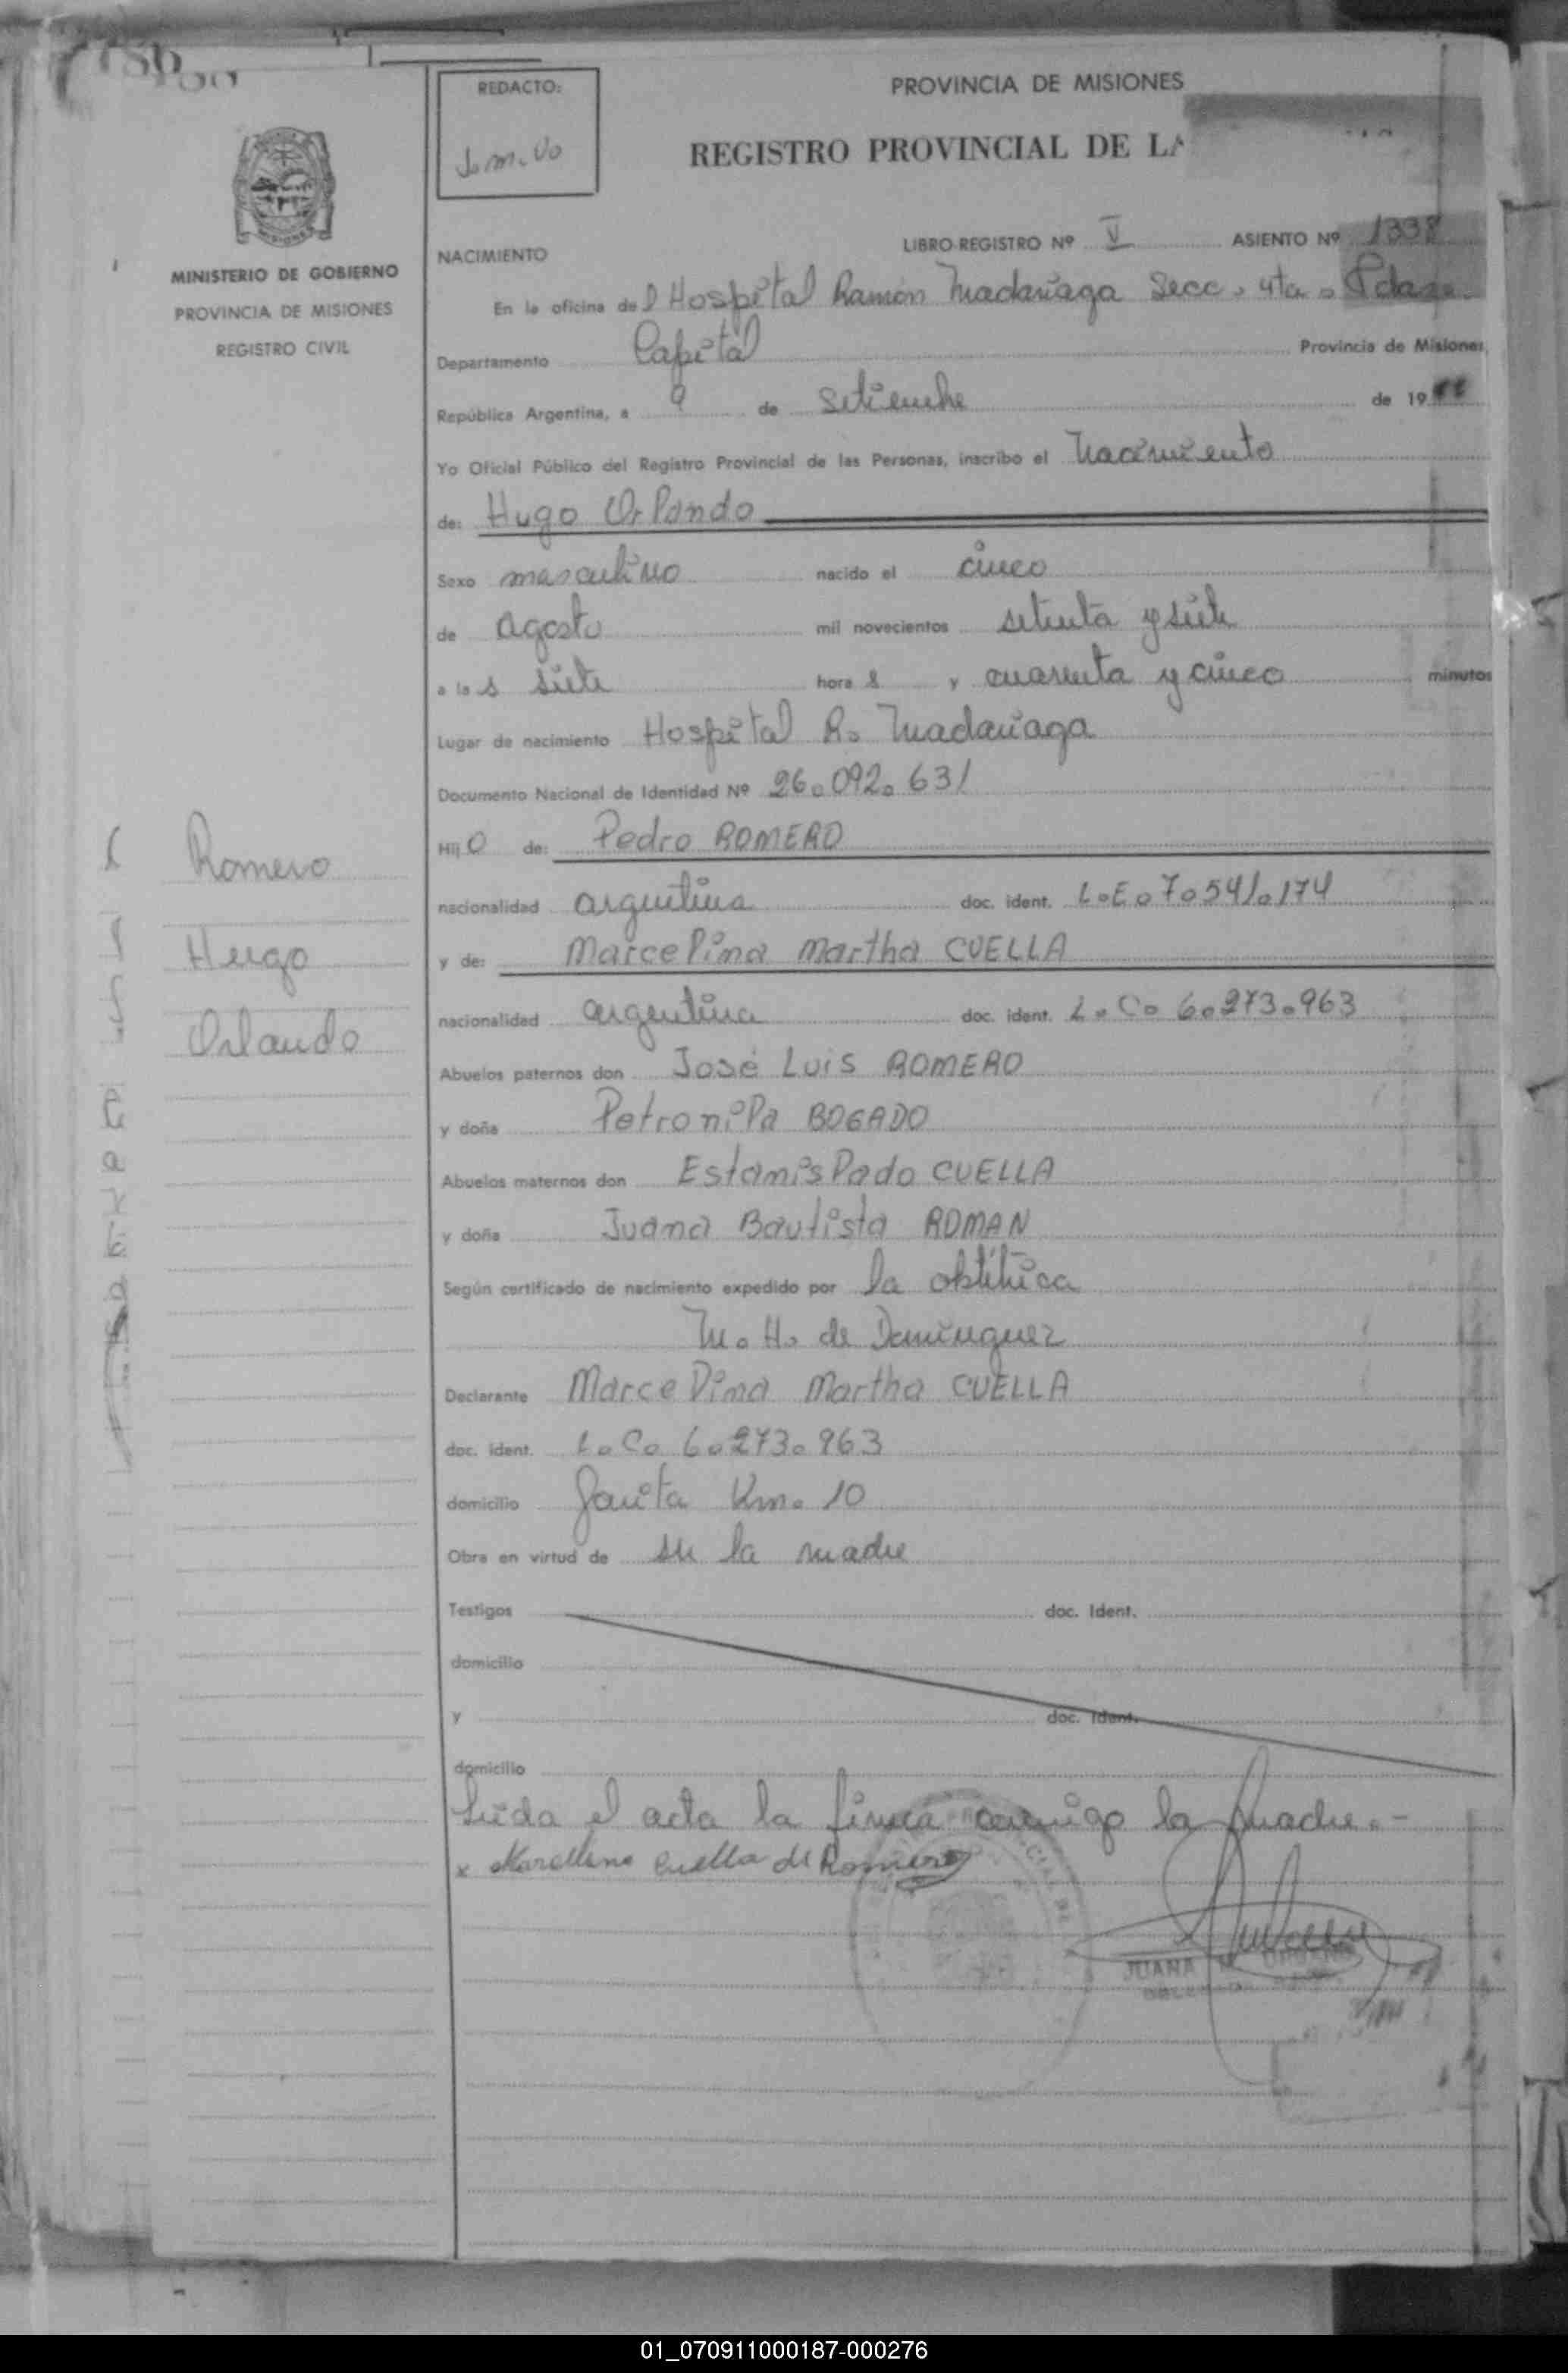 REDACTO:
PROVINCIA DE MISIONES
REGISTRO PROVINCIAL DE LA
MINISTERIO DE GOBIERNO
PROVINCIA DE MISIONES
REGISTRO CIVIL
NACIMIENTO
LIBRO-REGISTRO Nº V ASIENTO Nº 1338
En la oficina del Hospital Ramón Madariaga Secc. 4ta.
Departamento Capital Provincia de Misiones,
República Argentina, a 9 de setiembre de 19
Yo Oficial Público del Registro Provincial de las Personas, inscribo el Nacimiento
de: Hugo Orlando
Sexo masculino nacido el cinco
de agosto mil novecientos setenta y siete
a las siete horas y cuarenta y cinco minutos
Lugar de nacimiento Hospital R. Madariaga
Documento Nacional de Identidad Nº 26.092.631
Romero
Hugo
Orlando
Hijo de: Pedro ROMERO
nacionalidad argentina doc. ident. L.E. 7.541.174
y de: Marcelina Martha CUELLA
nacionalidad argentina doc. ident. L.C. 6.273.963
Abuelos paternos don José Luis ROMERO
y doña Petronila BOGADO
Abuelos maternos don Estanislado CUELLA
y doña Juana Bautista ROMAN
Según certificado de nacimiento expedido por la obstétrica
M. H. de Dominguez
Declarante Marcelina Martha CUELLA
doc. ident. L.C. 6.273.963
domicilio Garita Km. 10
Obra en virtud de ser la madre
Testigos doc. Ident.
domicilio
y doc. Ident.
domicilio
Leída el acta la firma conmigo la madre.-
x Marcelina Cuella de Romero
JUANA
01_070911000187-000276